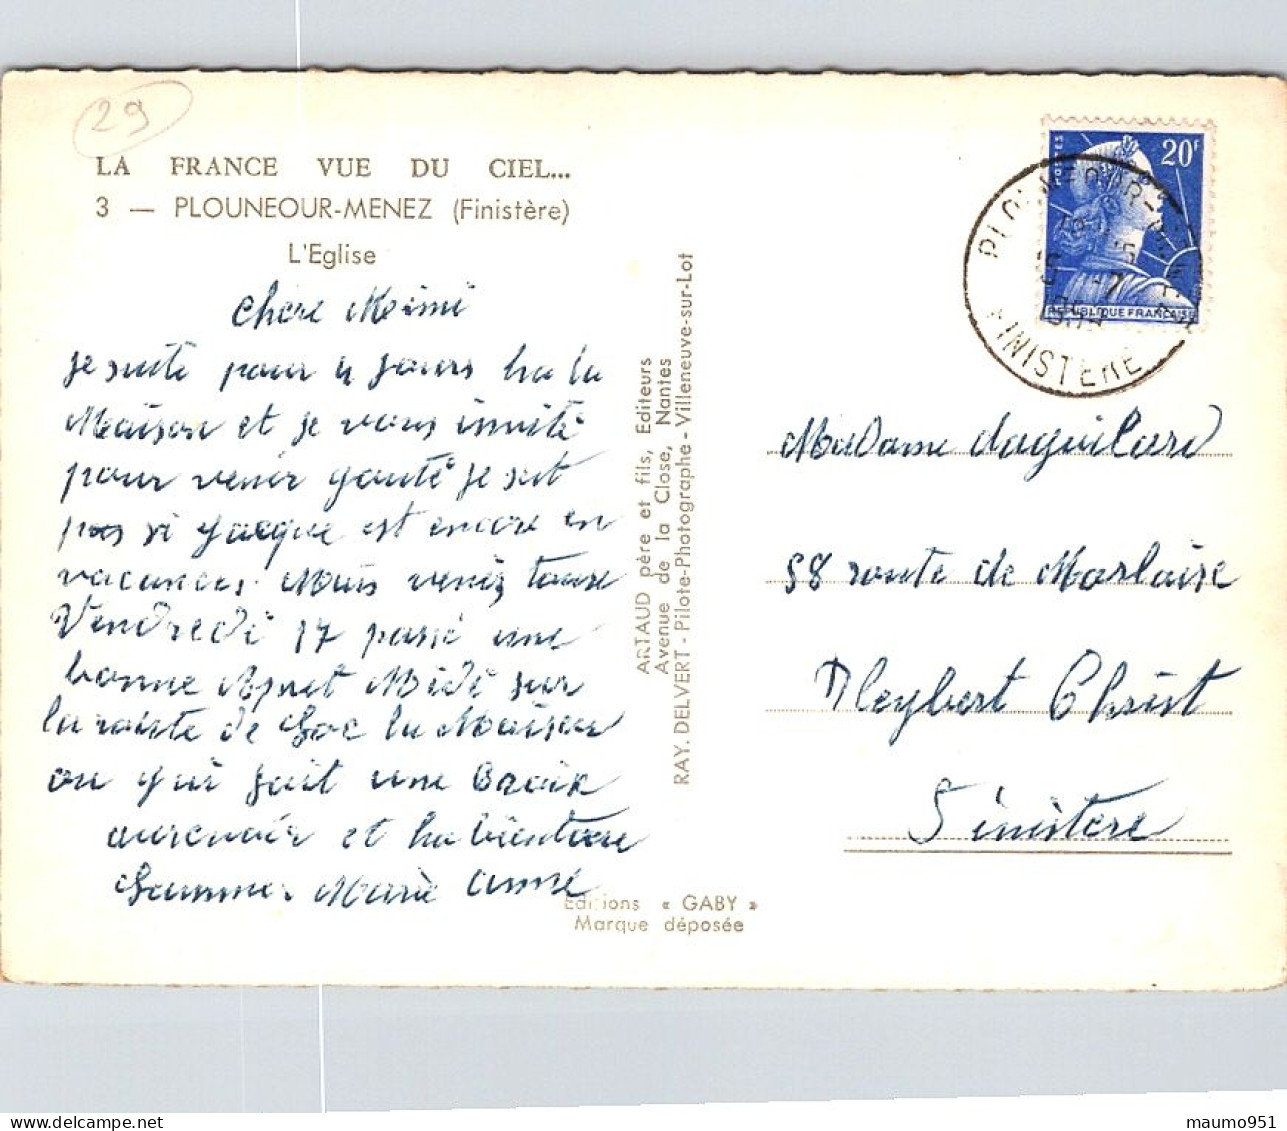 29
LA FRANCE VUE DU CIEL...
3 — PLOUNEOUR-MENEZ (Finistère)
L'Eglise
chère Mimi
je suite pour 4 jours ha la
Maison et je vous invité
pour venir gouté je set
pas si Jacque est encore en
vacances. Mais venez touse
Vendredi 17 passé une
bonne Apret Midi sur
la route de Loc la Maison
ou qui fait une Croix
aurevoir et ha bientore
Marie Anne
ARTAUD père et fils, Editeurs
Avenue de la Close, Nantes
RAY. DELVERT - Pilote-Photographe - Villeneuve-sur-Lot
Editions « GABY »
Marque déposée
POSTES
20F
REPUBLIQUE FRANÇAISE
PLOUNEOUR-MENEZ
FINISTERE
Madame daguilard
58 route de Morlaise
Pleybert Christ
Finistere
maumo951